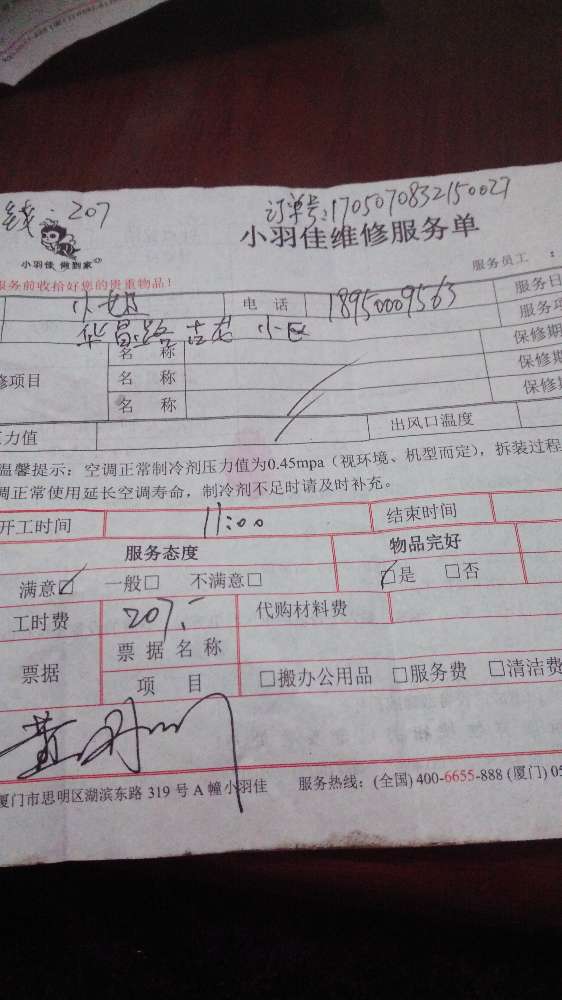 线：207
订单号：1705070832150027
小羽佳 做到家
小羽佳维修服务单
服务员工：
服务前收拾好您的贵重物品！
小姐 电话 18950009563 服务日
华昌路 吉龙 小区 服务项
名称 保修期
修项目 名称 保修期
名称 保修
压力值 出风口温度
温馨提示：空调正常制冷剂压力值为0.45mpa（视环境、机型而定），拆装过程
调正常使用延长空调寿命，制冷剂不足时请及时补充。
开工时间 11:00 结束时间
服务态度 物品完好
满意☑ 一般□ 不满意□ ☑是 □否
工时费 207.- 代购材料费
票据 票据名称
项目 □搬办公用品 □服务费 □清洁费
厦门市思明区湖滨东路 319 号 A 幢小羽佳 服务热线：(全国) 400-6655-888 (厦门) 05